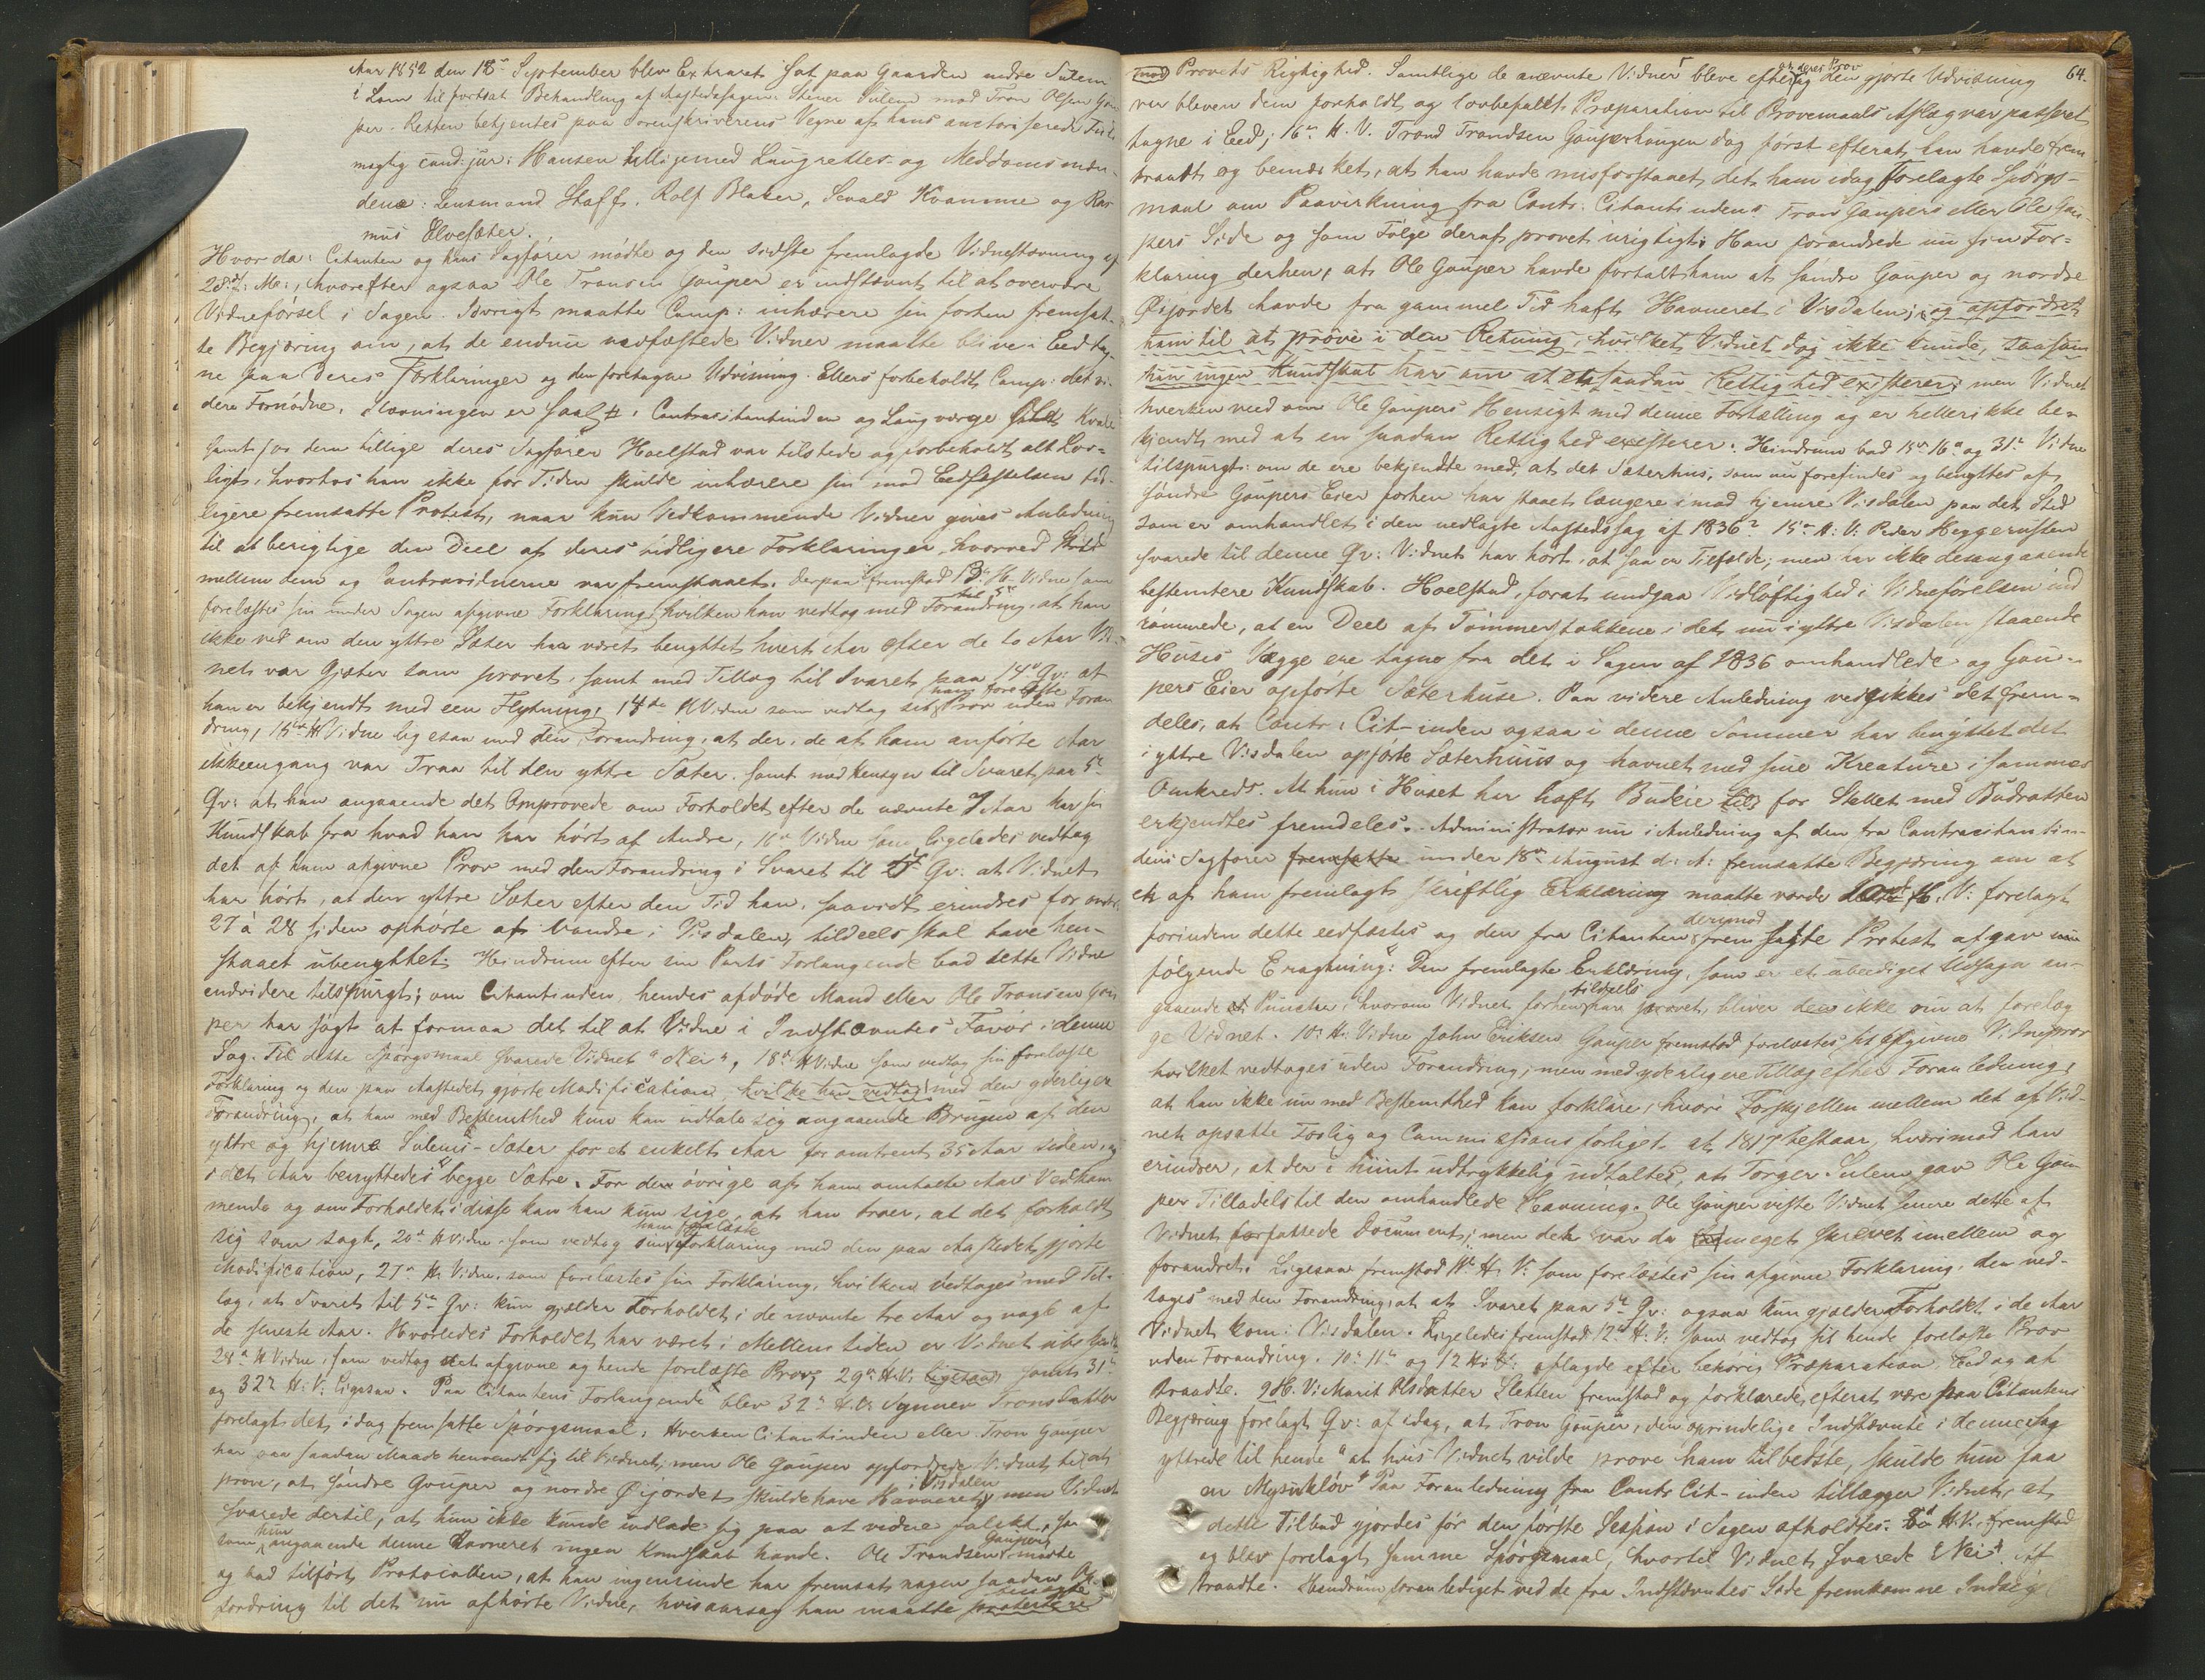 Aar 1852 den 18de September blev Extraret sat paa Gaarden nedre Sulem
i Lom til fortsat Behandling af Aastedssagen: Stener Sulem mod Tron Olsen Gau
per. Retten betjentes paa Sorenskriverens Vegne af hans auctoriserede Fuld
mægtig cand: jur: Hansen tilligemed Laugrettes- og Meddomsmæn-
dene: Lensmand Staff, Rolf Blaker, Sevald Kvamme og Ras
mus Elvesæter.
Hvor da: Citanten og hans Sagfører mødte og den sidste fremlagde Vidnestævning af
28de f: M:, hvorefter ogsaa Ole Tronsen Gauper er indstævnt til at overvære
Vidneførsel i Sagen. Iøvrigt maatte Comp: inhærere sin forhen fremsat-
te Begjæring om, at de endnu uedfæstede Vidner maatte blive i Eed tag-
ne paa deres Forklaringer og den foretagne Udvisning. Ellers forbeholdt Comp: det vi-
dere Fornødne. Stævningen er saal #. Contracitantinden og Laugværge Kvale
samt for dem tillige deres Sagfører Hoelstad var tilstede og forbeholdt alt Lov-
ligt, hvorhos han ikke for Tiden skulde inhærere sin mod Eedfæstelsen tid-
ligere fremsatte Protest, naar kun Vedkommende Vidner gives Anledning
til at berigtige den Deel af deres tidligere Forklaringer, hvorved Strid
mellem dem og Contravidnerne var fremstaaet. Derpaa fremstod 13de H-Vidne som
forelæstes sin under Sagen afgivne Forklaring, hvilken han vedtog med Forandring til 5te at han
ikke ved om den yttre Sæter har været benyttet hvert Aar efter de to Aar Vid-
net var Gjæter som provet, samt med Tillæg til Svaret paa 14de Qv: at
han er bekjendt med een Flytning, 14de H Vidne som vedtog sit ham forelæste Prov uden Foran
dring, 15de H Vidne ligesaa med den Forandring, at der, de af ham anførte Aar
ikke engang var Traa til den yttre Sæter. samt med Hensyn til Svaret paa 5te
Qv: at han angaaende det Omprovede om Forholdet efter de nævnte 7 Aar har sin
Kundskab fra hvad han har hørt af Andre, 16de Vidne som ligeledes vedtog
det af ham afgivne Prov med den Forandring i Svaret til 5te Qv: at Vidnet
har hørt, at den yttre Sæter efter den Tid han, saavidt erindres for omtr.
27 à 28 siden ophørte at vandre i Visdalen, tildeels skal have hen-
staaet ubenyttet. Heindrum efter sin Parts Forlangende bad dette Vidne
endvidere tilspurgt; om Citantinden, hendes afdøde Mand eller Ole Tronsen Gau
per har søgt at formaa det til at Vidne i Indstævntes Favør i denne
Sag. Til dette Spørgsmaal svarede Vidnet "Nei", 18de H Vidne som vedtog sin forelæste
Forklaring og den paa Aastedet gjorte Modification, hvilke han vedtog med den yderligere
Forandring, at han med Bestemthed kun kan udtale sig angaaende Brugen af den
yttre og hjemre Sulems-Sæter for et enkelt Aar for omtrent 35 Aar siden, og
i det Aar benyttedes begge Sætre. For de øvrige af ham omtalte Aars Vedkom
mende og om Forholdet i disse kan han kun sige, at han troer, at det forholdt
sig som sagt, 20de H Vidne som vedtog sin ham forelæste Forklaring med den paa Aastedet gjorte
Modification, 21de H. Vidne. som forelæstes sin Forklaring, hvilken vedtages med Til-
læg, at Svaret til 5te Qv: kun gjælder Forholdet i de nævnte tre Aar og nogle af
de seneste Aar. Hvorledes Forholdet har været i Mellemtiden er Vidnet ubekjendt
28de H Vidne, som vedtog det afgivne og hende forelæste Prov, 29de H.V. ligesaa, samt 31te
og 32te H: V: ligesaa. Paa Citantens Forlangende blev 32te H.V. Synnev Tronsdatter
forelagt det, i dag fremsatte Spørgsmaal: Hverken Citantinden eller Tron Gauper
har paa saadan Maade henvendt sig til Vidnet, men Ole Gauper opfordrede Vidnet til at
prove, at søndre Gauper og nordre Øigjordet skulde have Havneret i Visdalen, men Vidnet
svarede dertil, at hun ikke kunde indlade sig paa at vidne falskt, saa
som hun angaaende denne Havneret ingen Kundskab havde. Ole Trondsen Gauper mødte
og bad tilført Protocollen, at han ingensinde har fremsat nogen saadan Op-
fordring til det nu afhørte Vidne, hvisaarsag han maatte benægte protestere
64.
mod Provets Rigtighed. Samtlige de nævnte Vidner bleve efter at deres Prov og den gjorte Udvisning
var bleven dem foreholdt og lovbefalet Præparation til Provemaals Aflæg var passeret
tagne i Eed; 16de H. V. Trond Trondsen Gauperhaugen dog først efterat han havde frem
traadt og bemærket, at han havde misforstaaet det ham idag forelagte Spørgs-
maal om Paavirkning fra Contr. Citantindens Trons Gaupers eller Ole Gau-
pers Side og som Følge deraf provet urigtigt; Han forandrede nu sin For-
klaring derhen, at Ole Gauper havde fortalt ham at søndre Gauper og nordre
Øijordet havde fra gammel Tid haft Havneret i Visdalen; og opfordret
ham til at prove i den Retning, hvilket Vidnet dog ikke kunde, saasom
han ingen Kundskab har om at en saadan Rettighed existerer; men Vidnet
hverken veed om Ole Gaupers Hensigt med denne Fortælling og er heller ikke be-
kjendt med at en saadan Rettighed existerer. Heindrum bad 15de 16de og 31te Vidne
tilspurgt: om de ere bekjendte med, at det Sæterhus, som nu forefindes og benyttes af
søndre Gaupers Eier forhen har staaet længere imod hjemre Visdalen paa det Sted
som er omhandlet i den nedlagte Aastedssag af 1836? 15de H: V: Peder Heggernsten
svarede til denne Qv: Vidnet har hørt, at saa er Tilfælde; men har ikke desangaaende
bestemtere Kundskab. Hoelstad, for at undgaa Vidløftighed i Vidneførelsen ind
rømmede, at en Deel af Tømmerstokkene i det nu i yttre Visdalen staaende
Huses Vægge ere tagne fra det i Sagen af 1836 omhandlede og Gau-
pers Eier opførte Sæterhuse. Paa videre Anledning vedgikkes det frem-
deles, at Contr: Cit-inden ogsaa i denne Sommer har benyttet det
i yttre Visdalen opførte Sæterhuus og havnet med sine Kreature i sammes
Omkreds. At hun i Huset har haft Budeie for Stellet med Budraatten
erkjendtes fremdeles. Administrator nu i Anledning af den fra Contracitantin-
dens Sagfører fremsatte under 18de August d: A: fremsatte Begjæring om at
en af ham fremlagt skriftlig Erklæring maatte vorde 10de H. V: forelagt
forinden dette eedfæstes og den fra Citanten derimod fremsatte Protest afgav
følgende Eragtning: Den fremlagte Erklæring, som er et ubeediget Udsagn an-
gaaende et Puncter, hvorom Vidnet forhen tildeels har provet, bliver ikke om at forelæg
ge Vidnet. 10de H: Vidne John Eriksen Gauper fremstod forelæstes sit afgivne Vidneprov
hvilket vedtages uden Forandring, men med yderligere Tillæg efter Foranledning,
at han ikke nu med Bestemthed kan forklare, hvori Forskjellen mellem det af Vid-
net opsatte Forlig og Commissionsforliget af 1817 bestaar, hvorimod han
erindrer, at der i hiint udtrykkelig udtaltes, at Torger Sulem gav Ole Gau-
per Tilladels til den omhandlede Havning. Ole Gauper viste Vidnet senere dette af
Vidnet forfattede Document; men det var da meget skrevet imellem og
forandret. Ligesaa fremstod 11te H. V: som forelæstes sin afgivne Forklaring, den ved-
toges med den Forandring, at at Svaret paa 5te Qv: ogsaa kun gjælder Forholdet i de Aar
Vidnet kom i Visdalen. Ligeledes fremstod 12te H: V: som vedtog sit hende forelæste Prov
uden Forandring. 10de 11te og 12 H: V: aflagde efter behørig Præparation Eed og af
traadte. 9 H. V: Marit Olsdatter Sletten fremstod og forklarede, efterat være paa Citantens
Begjæring forelagt Qv: af idag, at Tron Gauper, den oprindelige Indstævnte i denne Sag
yttrede til hende "at hvis Vidnet vilde prove ham til bedste, skulde hun faa
en Mysukløv" Paa Foranledning fra Contr Cit-inden tillægger Vidnet, at
dette Tilbud gjordes før den første Session i Sagen afholdtes. 8de H.V. fremstod
og blev forelagt samme Spørgsmaal, hvortil Vidnet svarede "Nei". Af
traadte. Heindrum foranlediget ved de fra Indstævntes Side fremkomne Indsig